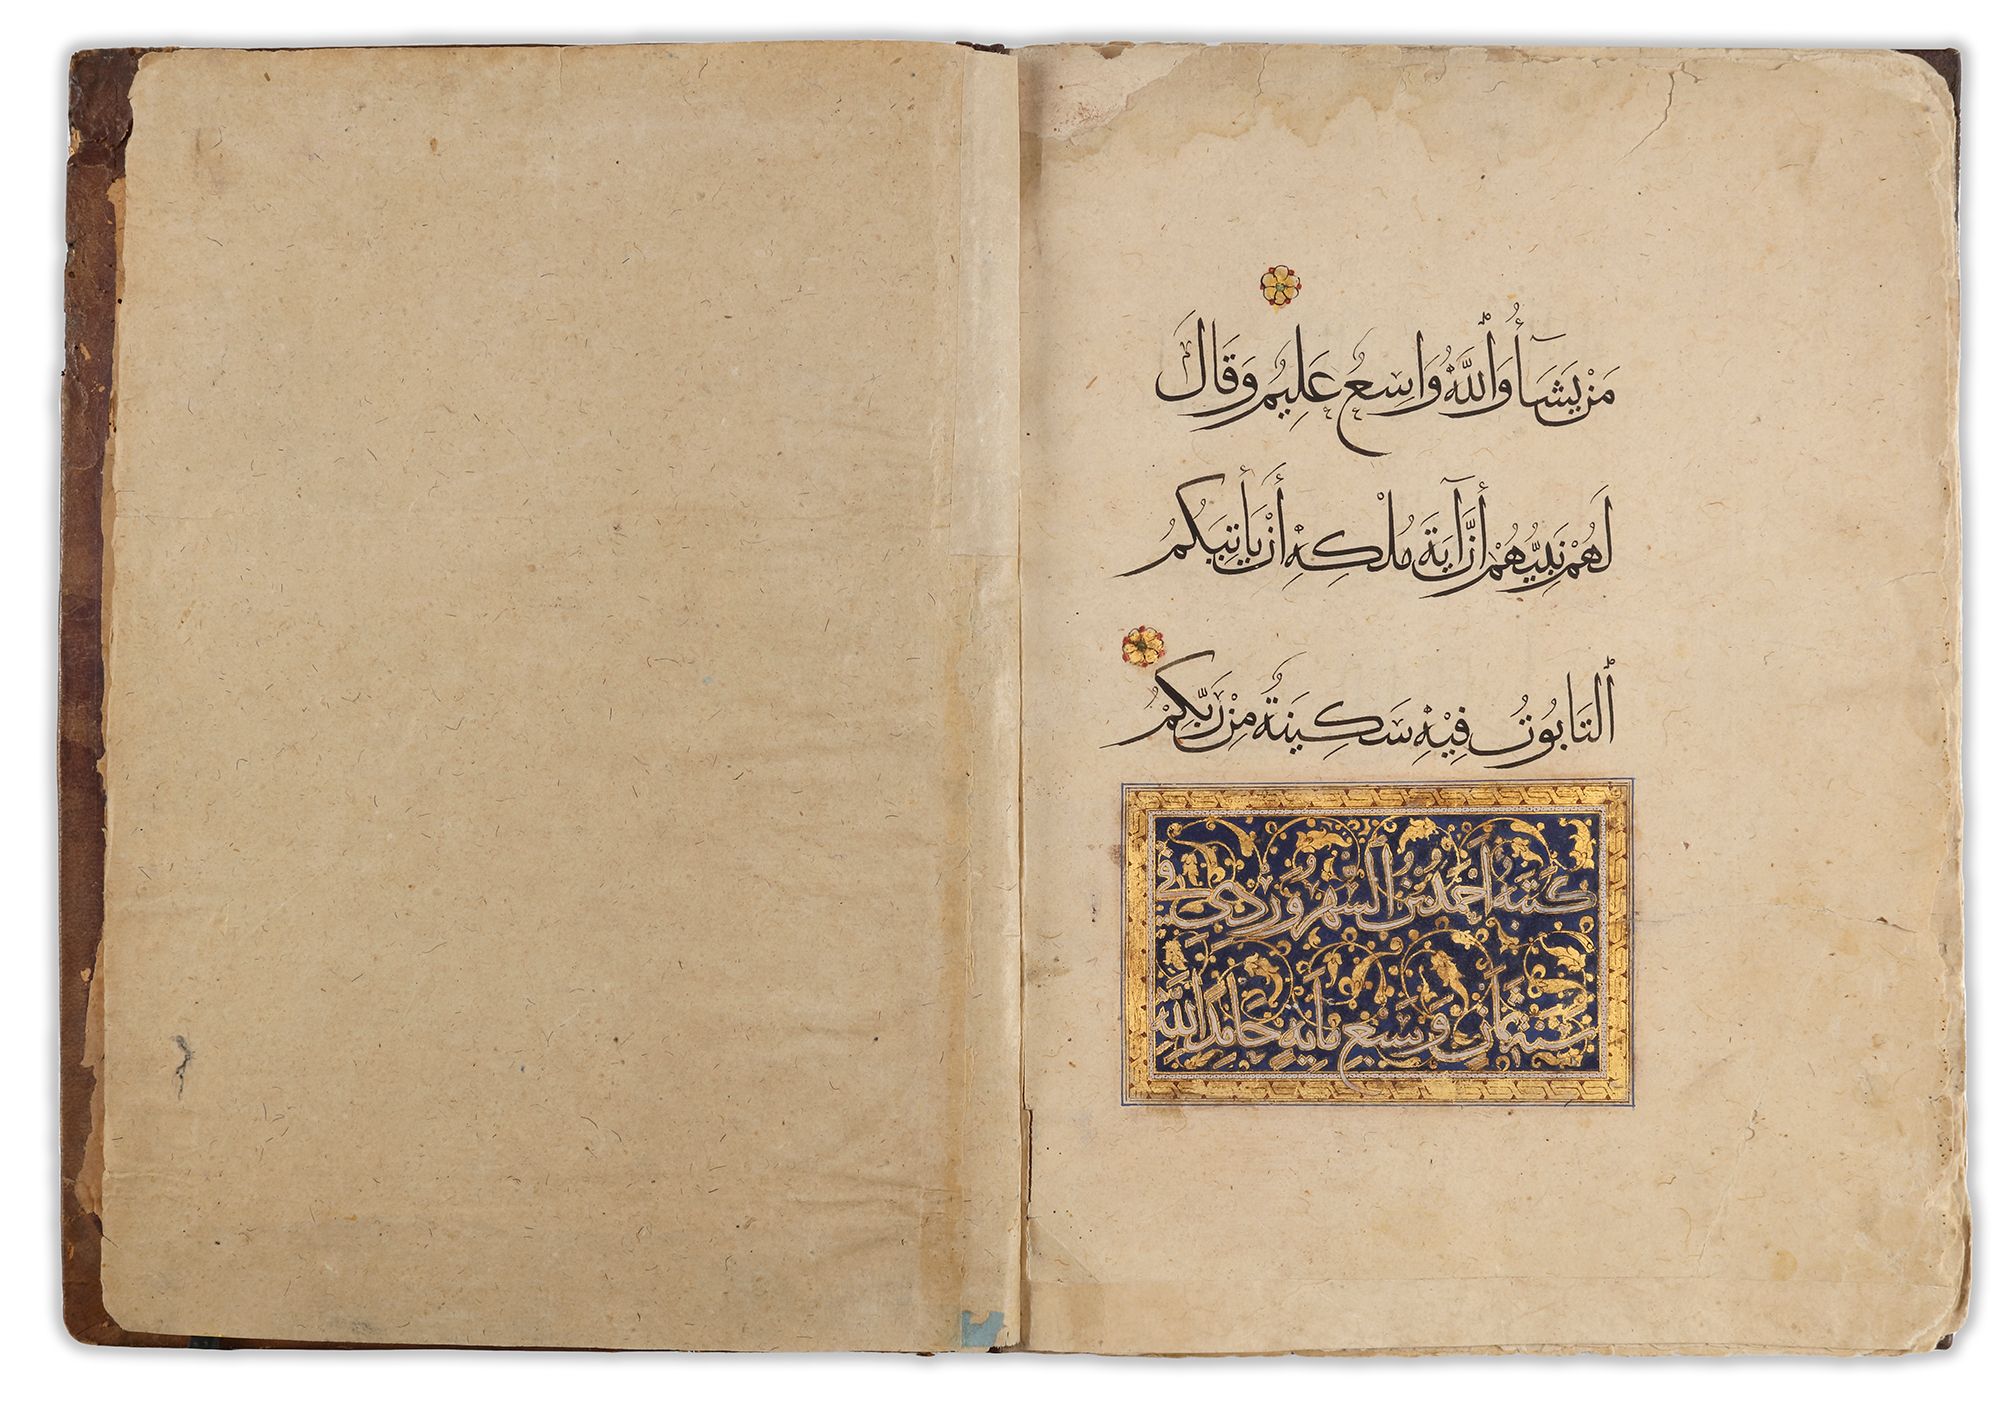 مَنْ يَشَآءُ وَٱللَّهُ وَاسِعٌ عَلِيمٌ وَقَالَ
لَهُمْ نَبِيُّهُمْ أَنَّ آيَةَ مُلْكِهِ أَنْ يَأْتِيَكُمُ
ٱلتَّابُوتُ فِيْهِ سَكِينَةٌ مِنْ رَبِّكُمْ
كَتَبَهُ أَحْمَدُ بْنُ ٱلسُّهْرَوَرْدِي فِي
سَنَةِ ثَمَانٍ وَسَبْعِ مِايَةٍ حَامِدًا لِلَّهِ